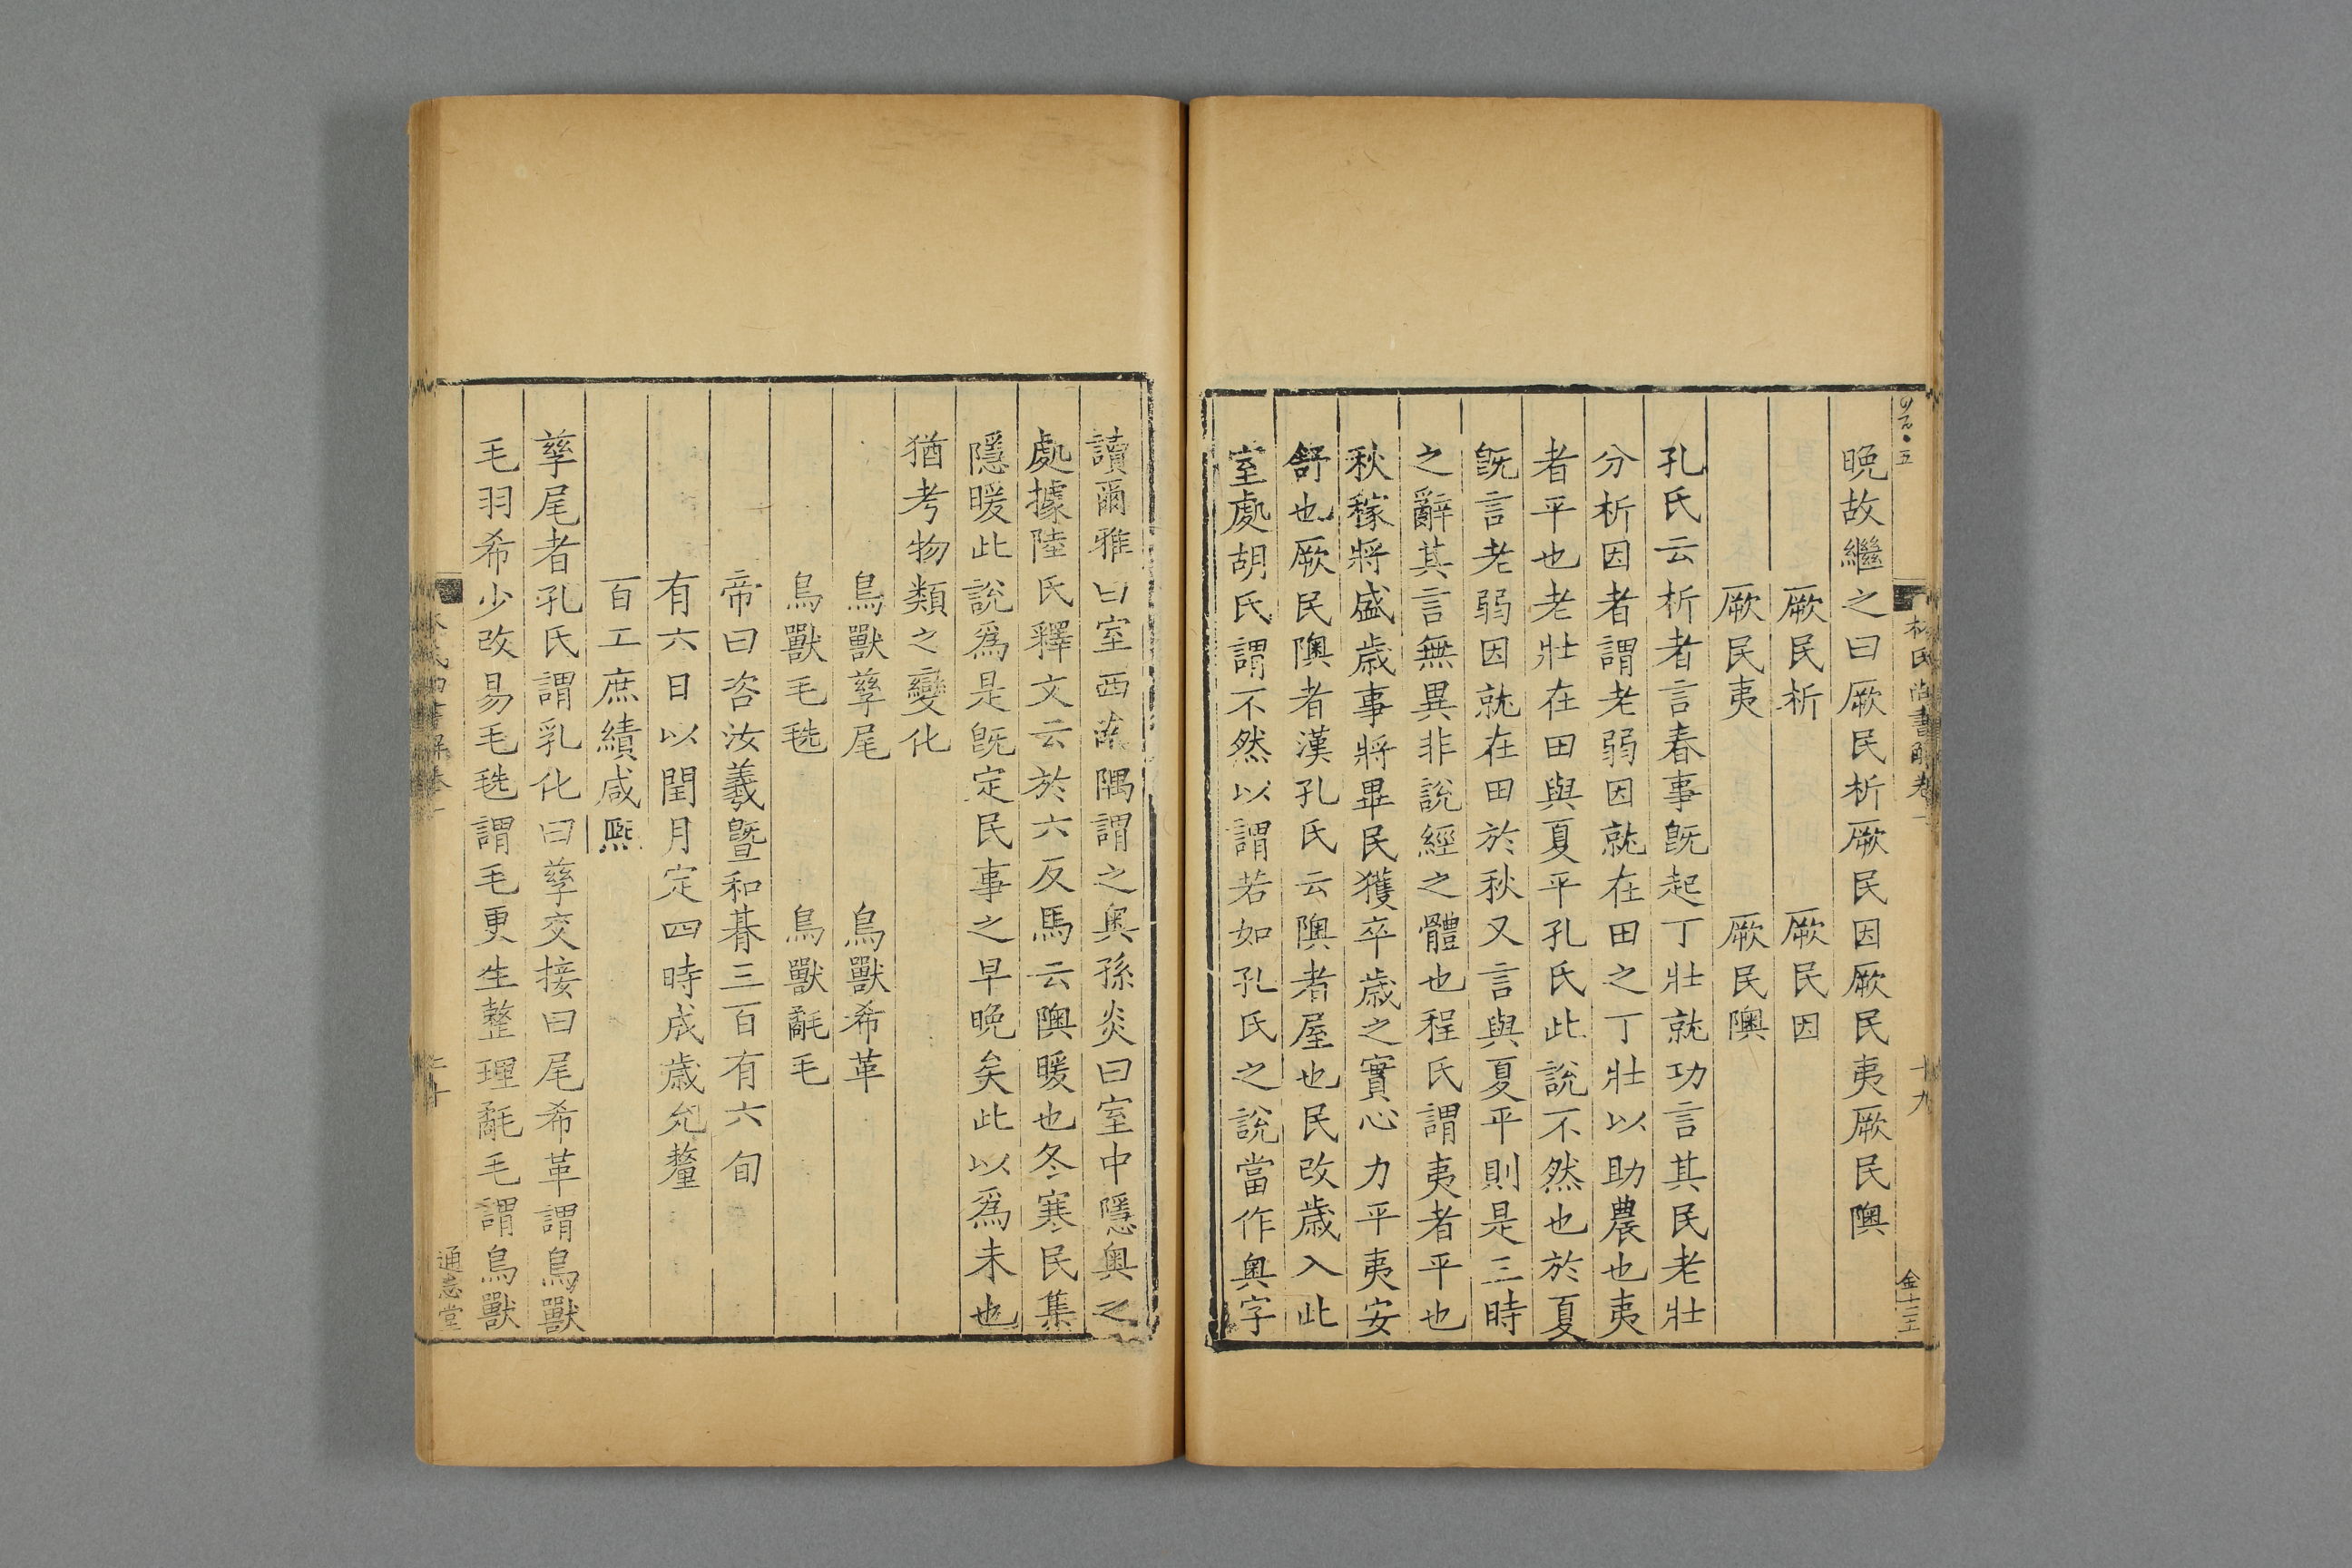 林氏尚書解卷一
十九
晚故繼之曰厥民析厥民因厥民夷厥民隩
厥民析 厥民因
厥民夷 厥民隩
孔氏云析者言春事旣起丁壯就功言其民老壯
分析因者謂老弱因就在田之丁壯以助農也夷
者平也老壯在田與夏平孔氏此說不然也於夏
旣言老弱因就在田於秋又言與夏平則是三時
之辭其言無異非說經之體也程氏謂夷者平也
秋稼將盛歲事將畢民獲卒歲之實心力平夷安
舒也厥民隩者漢孔氏云隩者屋也民改歲入此
室處胡氏謂不然以謂若如孔氏之說當作奥字
讀爾雅曰室西南隅謂之奥孫炎曰室中隱奥之
處據陸氏釋文云於六反馬云隩暖也冬寒民集
隱暖此說爲是旣定民事之早晚矣此以爲未也
猶考物類之變化
鳥獸孳尾 鳥獸希革
鳥獸毛毨 鳥獸氄毛
帝曰咨汝羲曁和朞三百有六旬
有六日以閏月定四時成歲允釐
百工庶績咸熙
孳尾者孔氏謂乳化曰孳交接曰尾希革謂鳥獸
毛羽希少改易毛毨謂毛更生整理氄毛謂鳥獸
通志堂